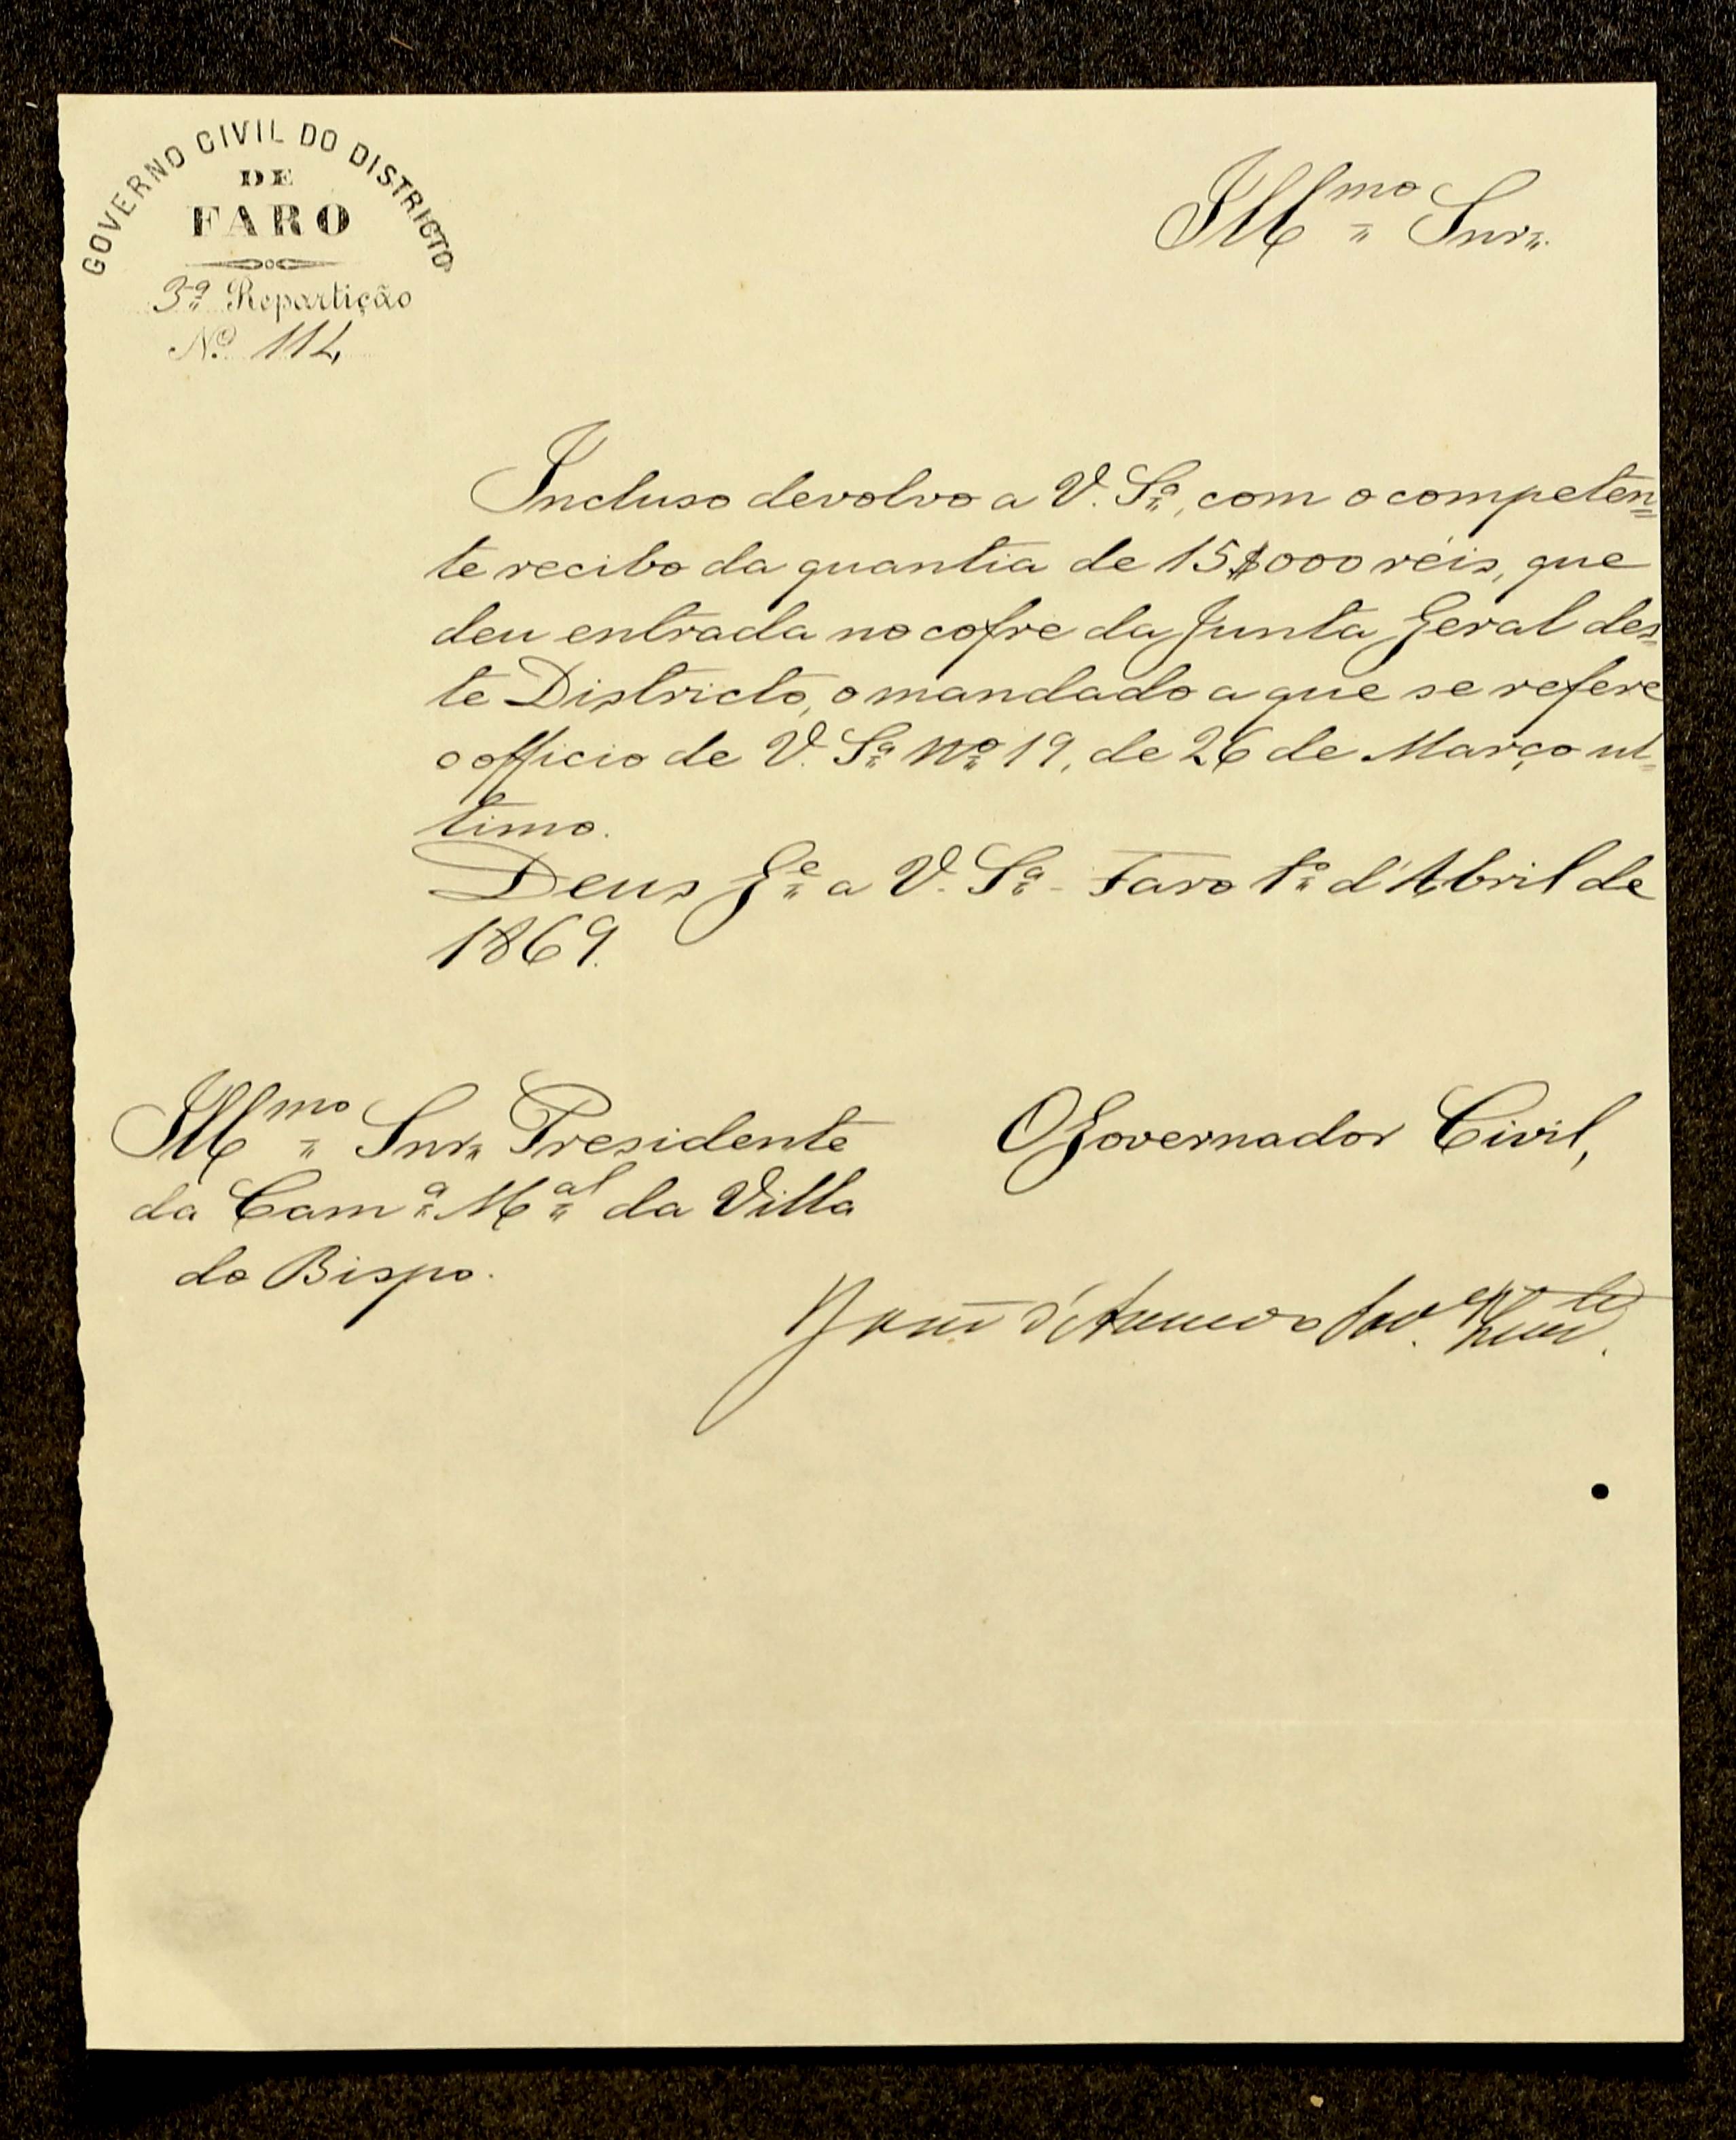 GOVERNO CIVIL DO DISTRICTO
DE
FARO
3ª Repartição
Nº 114
Illmo Snr.
Incluso devolvo a V. Sª, com o competen=
te recibo da quantia de 15$000 réis, que
deu entrada no cofre da Junta Geral des=
te Districto, o mandado a que se refere
o officio de V. Sª Nº 19, de 26 de Março ul=
timo.
Deus Ge a V. Sª - Faro 1º d'Abril de
1869.
Illmo Snr. Presidente
da Camª Mal da Villa
do Bispo.
O Governador Civil,
José